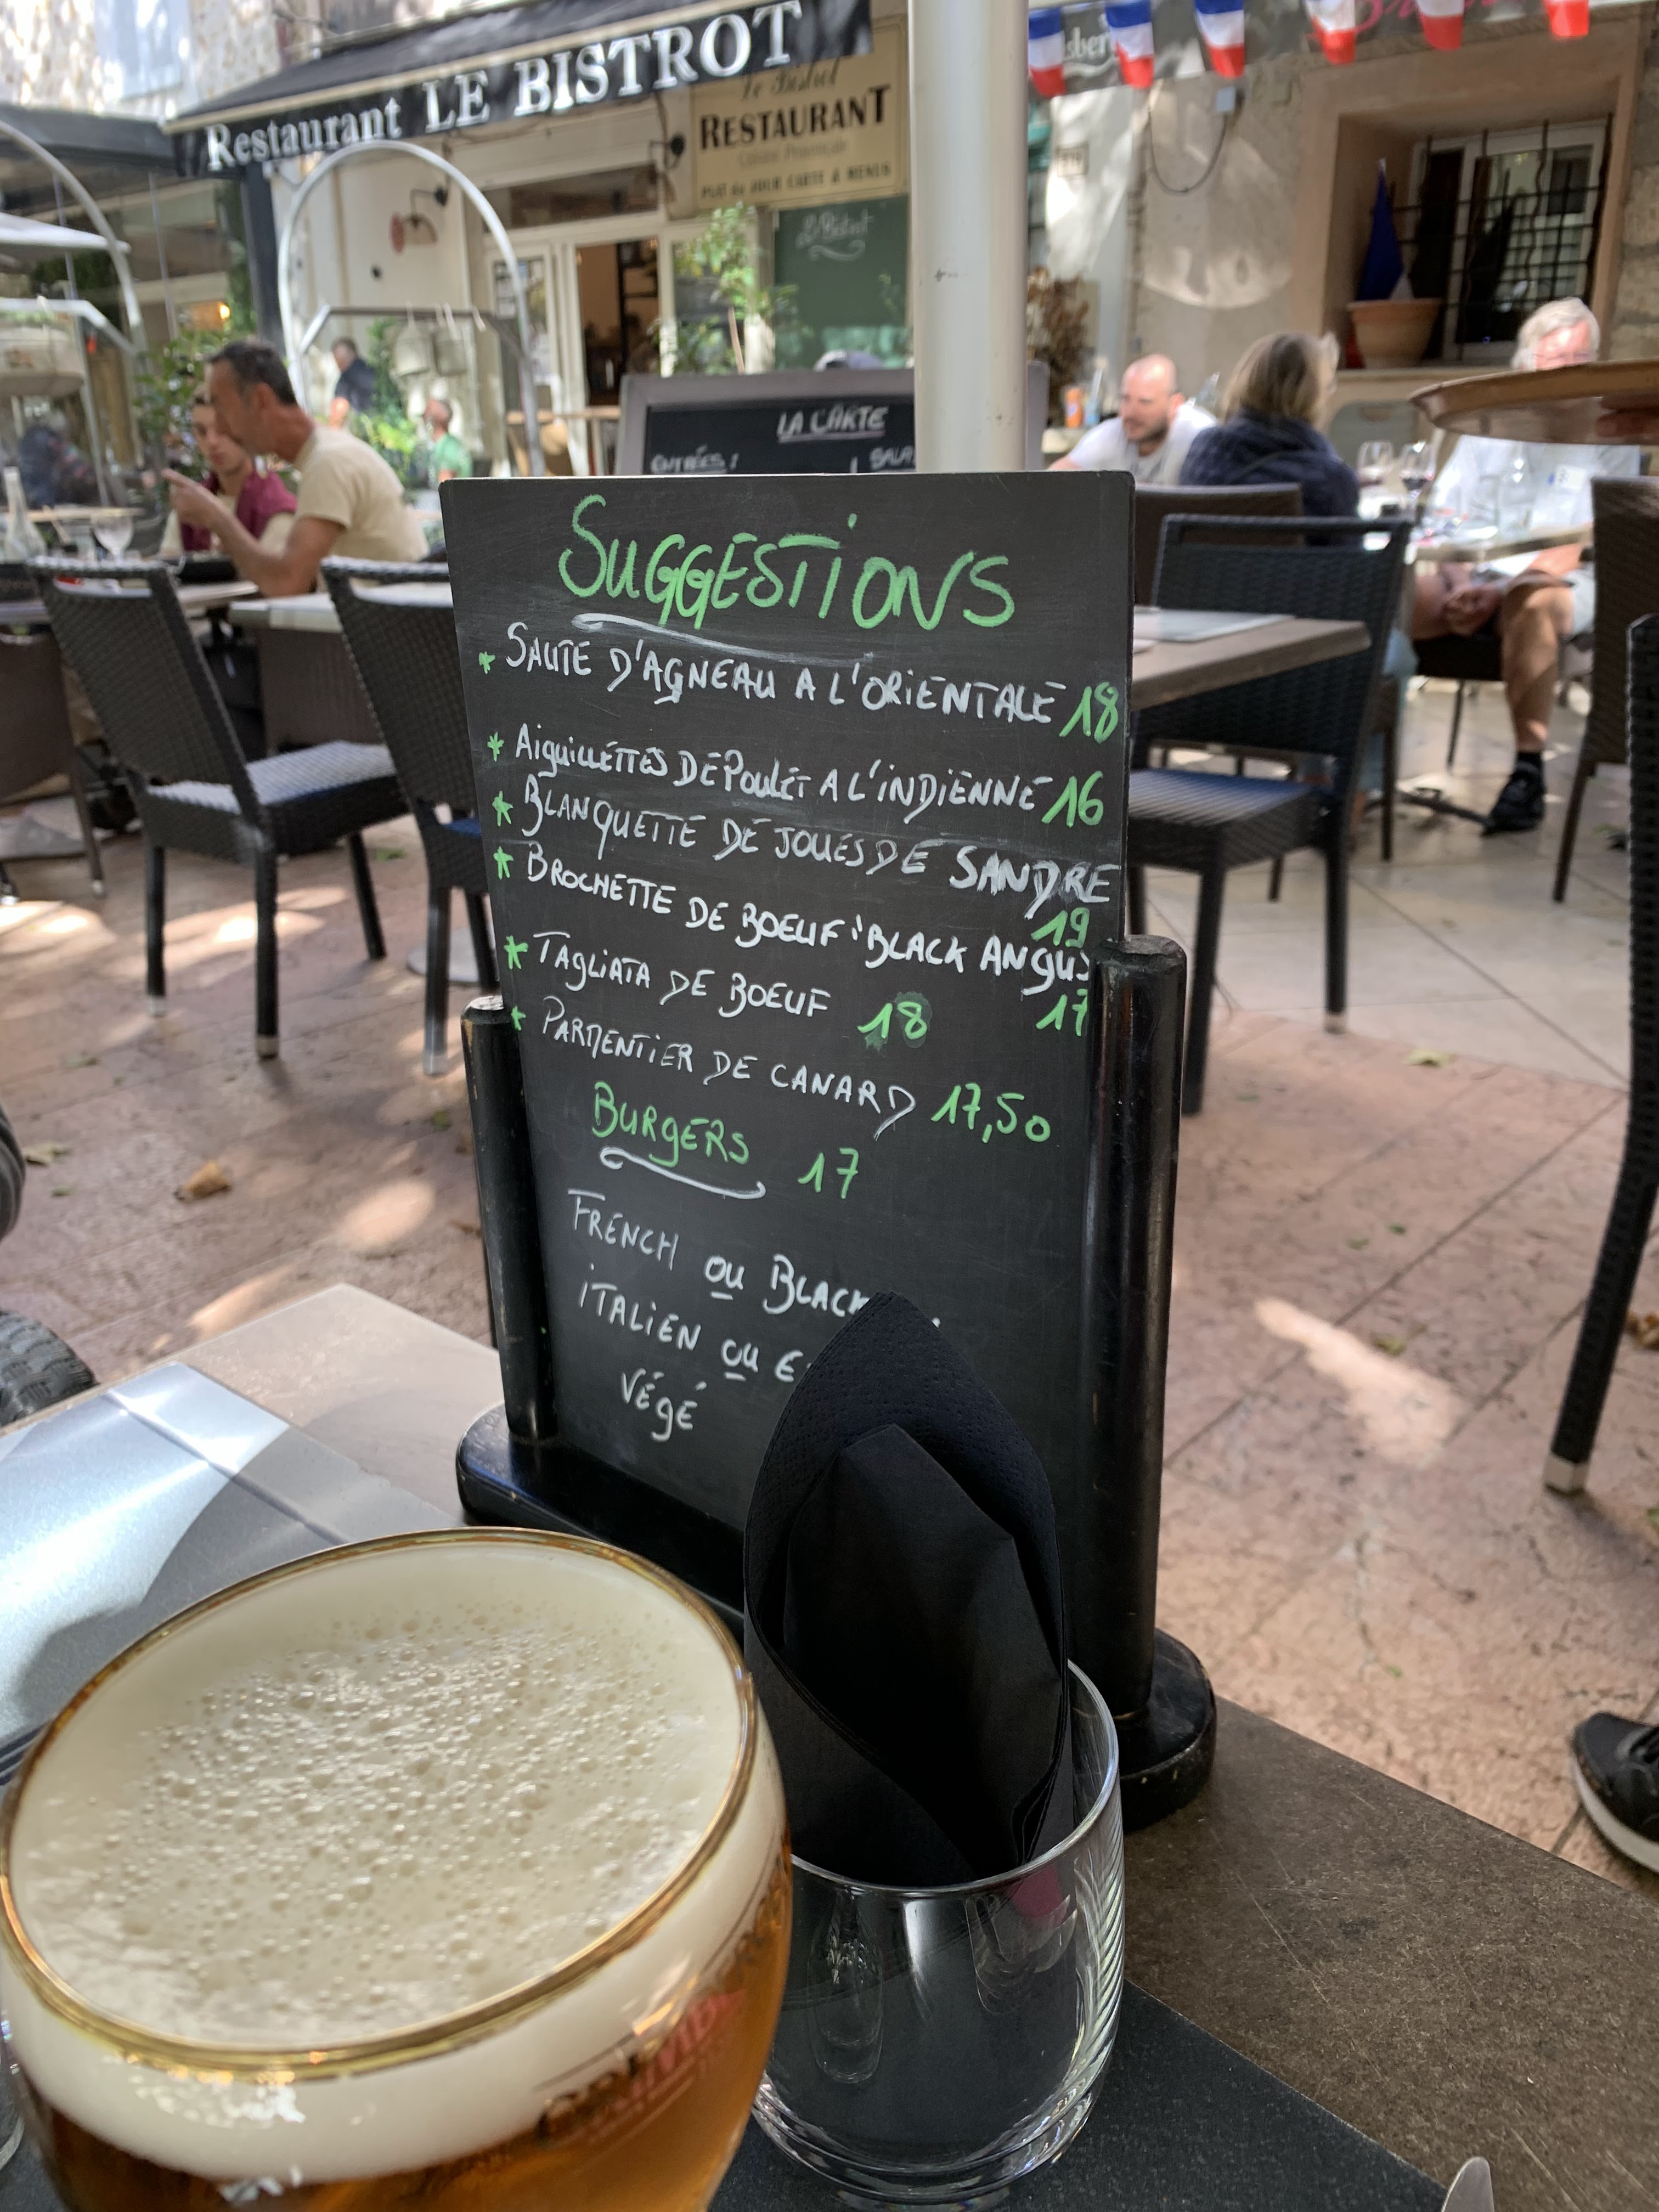 Restaurant LE BISTROT
Le Bistrot
RESTAURANT
Cuisine Provençale
PLAT du JOUR CARTE & MENUS
LA CARTE
ENTRÉES :
SUGGESTIONS
* SAUTE D'AGNEAU A L'ORIENTALE 18
* AiguillETTES DE Poulet A L'iNDiENNE 16
* BLANQUETTE DE JOUES DE SANDRE
19
* BROCHETTE DE BOEUF "BLACK ANgUS
17
* TAgLiATA DE BOEUF 18
* PARMENTiER DE CANARD 17,50
BURgERS 17
FRENCH ou BLACK
iTALiEN ou
VÉgÉ